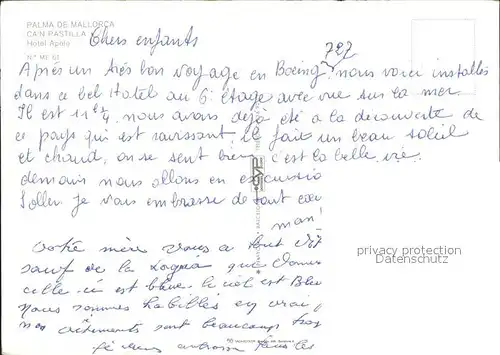 PALMA DE MALLORCA
CA'N PASTILLA
Hotel Apolo
N.º ML 61
Chers enfants
727
Après un très bon voyage en Boeing nous voici installés
dans ce bel Hotel au 6. étage avec vue sur la mer.
Il est 11 nous avons déjà été a la découverte de
ce pays qui est ravissant il fait un beau soleil
et chaud, on se sent bien, c'est la belle vie.
demain nous allons en excursio
Soller je vous embrasse de tout coeu
man
Votre mère vous a tout dit
sauf de la que
celle-ci est bleue. le ciel est Bleu
nous sommes habillés en
nos vêtements sont beaucoup trop
je vous embrasse tous les
privacy protection
Datenschutz